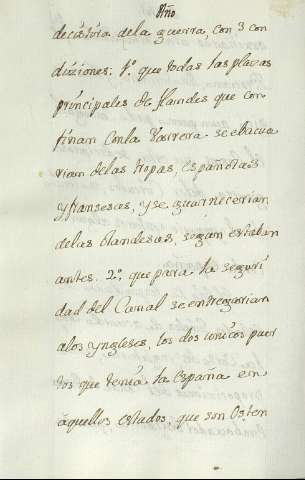 Año
decutora dela guerra, con 3 con
diziones: 1º. que todas las plazas
prinzipales de flandes que con
finan conla Varrera se ebacua
rian delas tropas, españolas
y fransesas, y se guarnecerian
delas olandesas, segun estaban
antes. 2º. que para la seguri
dad del Canal se entregarian
alos yngleses, los dos unicos puer
tos que tenia la españa en
aquellos estados, que son Osten